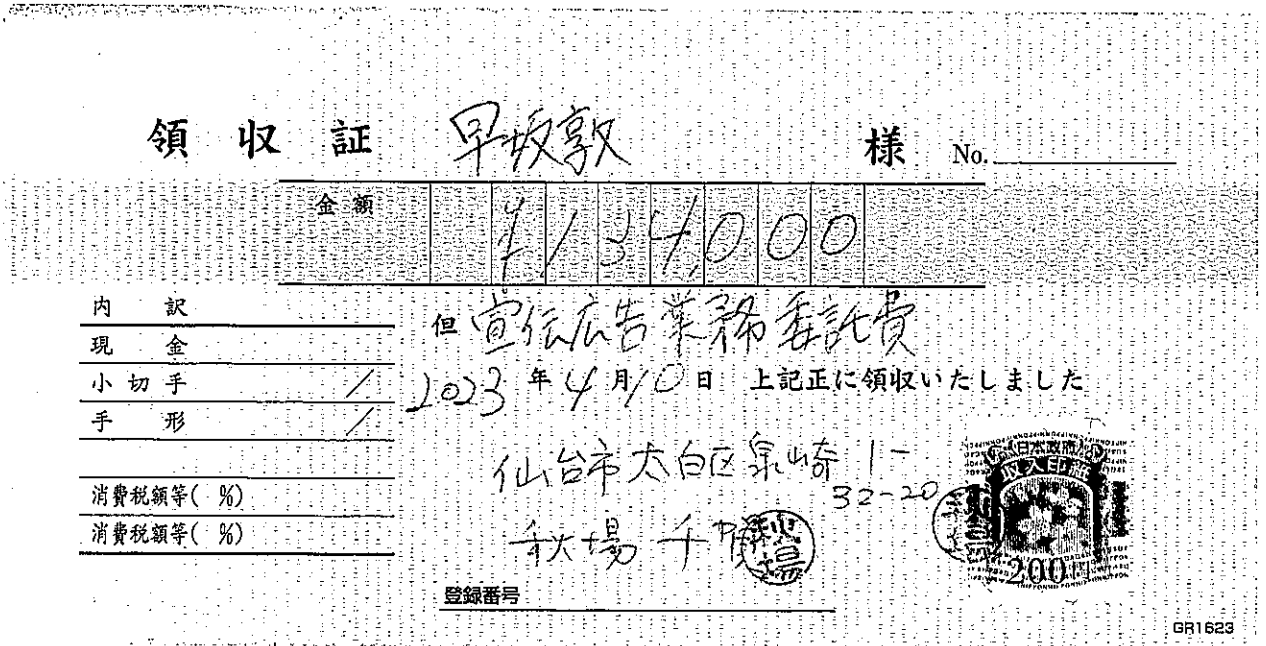 領収証 早坂敦 様 No.
金額 ¥134,000
内訳
現金
小切手
手形
消費税額等( %)
消費税額等( %)
但 宣伝広告業務委託費
2023年4月10日 上記正に領収いたしました
仙台市太白区泉崎1-
32-20
秋場 千
秋場
日本政府
収入印紙
200円
登録番号
GR1623